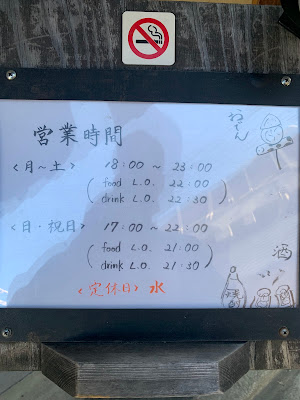 営業時間
おでん
<月~土> 18:00 ~ 23:00
(food L.O. 22:00
drink L.O. 22:30)
<日・祝日> 17:00 ~ 22:00
(food L.O. 21:00
drink L.O. 21:30)
酒
<定休日> 水